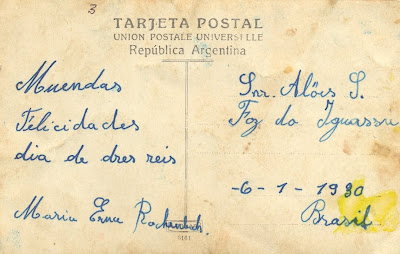 3
TARJETA POSTAL
UNION POSTALE UNIVERSELLE
República Argentina
Muendas
Felicidades
dia de dres reis
Maria Erna Rockenbach.
Snr. Alöis S.
Foz do Iguassu
-6-1-1930
Brasil